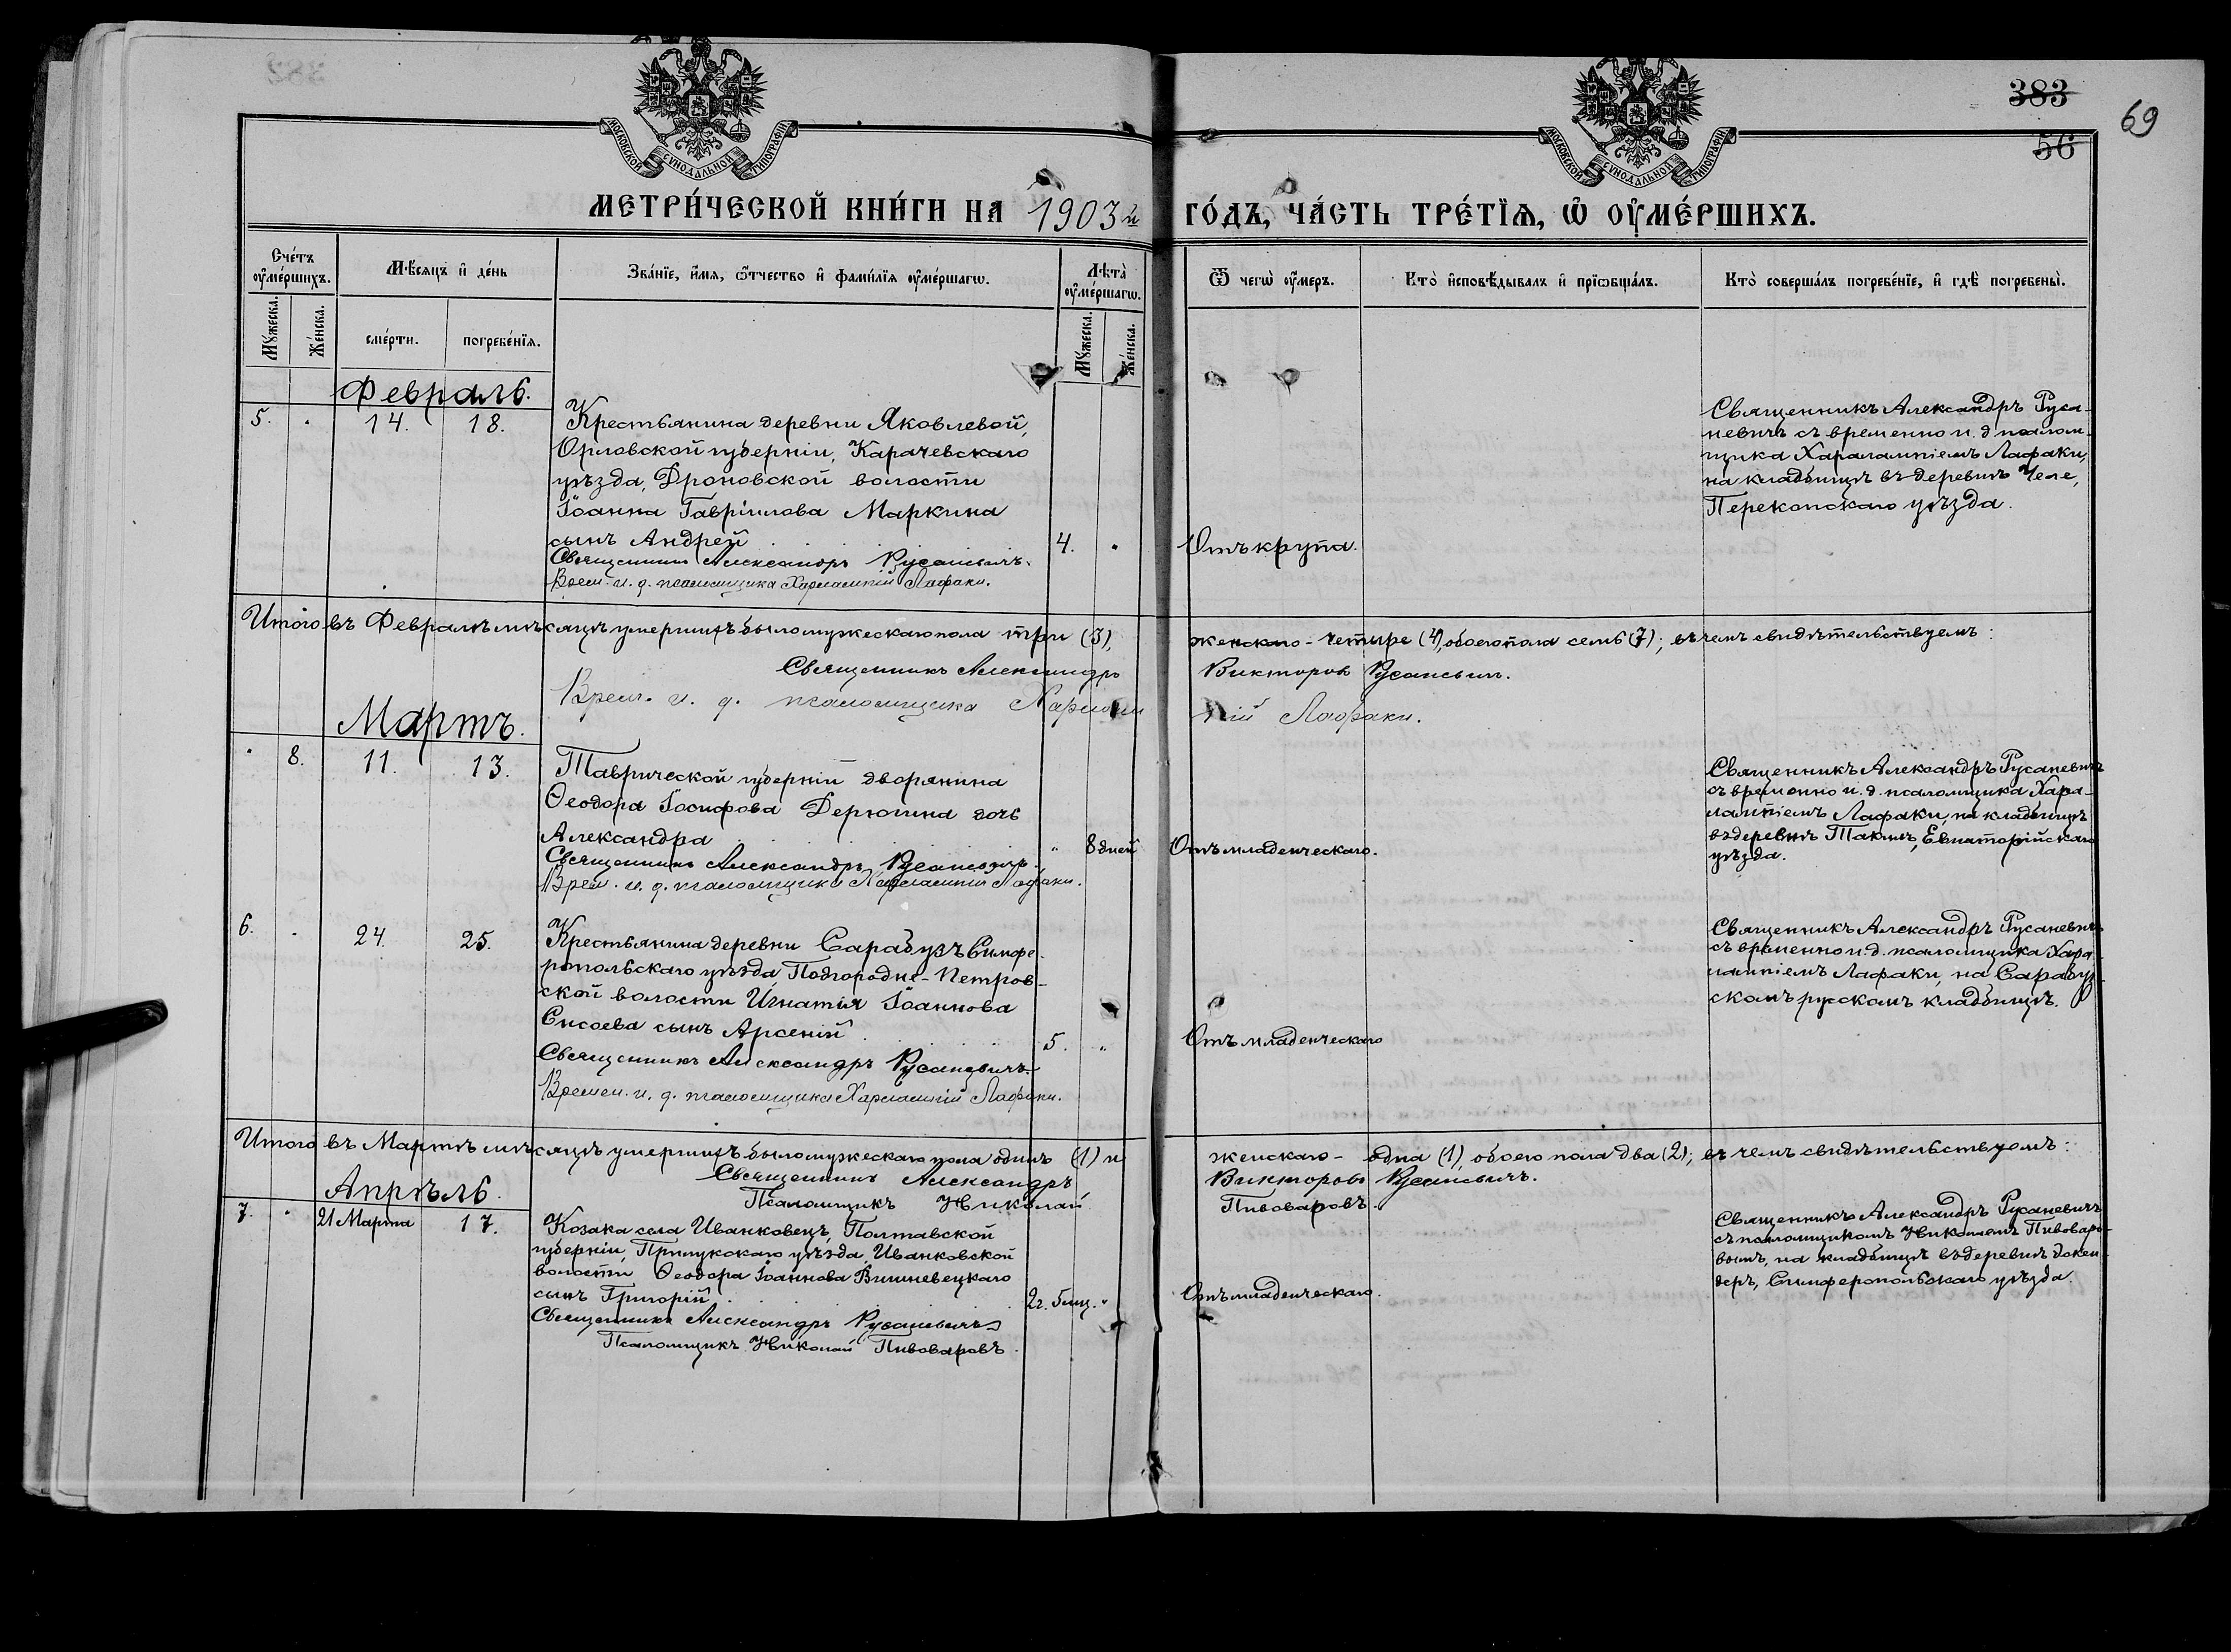 383
69
56
МОСКОВСКОЙ СѴНОДАЛЬНОЙ ТИПОГРАФІИ
МОСКОВСКОЙ СѴНОДАЛЬНОЙ ТИПОГРАФІИ
МЕТРИ́ЧЕСКОЙ КНИ́ГИ НА 1903й ГО́ДЪ, ЧА́СТЬ ТРЕ́ТЇѦ, Ѡ҆ ОУ҆МЕ́РШИХЪ.
Сче́тъ оу҆ме́ршихъ.
Мꙋ́жеска.
Же́нска.
Мѣ́сяцъ и҆ де́нь
сме́рти.
погребе́нїѧ.
Зва́нїе, и҆́мѧ, ѻ҆́тчество и҆ фами́лїѧ оу҆ме́ршагѡ.
Лѣ́та оу҆ме́ршагѡ.
Мꙋ́жеска.
Же́нска.
Ѿ чегѡ̀ оу҆́меръ.
Кто̀ и҆сповѣ́дывалъ и҆ прїѡбща́лъ.
Кто̀ соверша́лъ погребе́нїе, и҆ гдѣ̀ погребены̀.
Февраль.
5. " 14. 18.
Крестьянина деревни Яковлевой,
Орловской губерніи, Карачевскаго
уѣзда, Дроновской волости
Іоанна Гавріилова Маркина
сынъ Андрей 4. " Отъ крупа.
Священникъ Александръ Русаневичъ.
Врем. и. д. псаломщика Харлампій Лафаки.
Священникъ Александръ Руса-
невичъ съ временно и. д. псалом-
щика Харалампіемъ Лафаки,
на кладбищѣ въ деревнѣ Челе,
Перекопскаго уѣзда.
Итого въ Февралѣ мѣсяцѣ умершихъ было мужескаго пола три (3), женскаго - четыре (4), обоего пола семь (7); въ чемъ свидѣтельствуемъ:
Священникъ Александръ Викторовъ Русаневич.
Врем. и. д. псаломщика Харлампій Лафаки.
Мартъ.
" 8. 11. 13.
Таврической губерніи дворянина
Ѳеодора Іосифова Дерюгина дочь
Александра " 8 дней Отъ младенческаго.
Священникъ Александръ Русаневичъ.
Врем. и. д. псаломщика Харлампій Лафаки.
Священникъ Александръ Русаневичъ
съ временно и. д. псаломщика Хара-
лампіемъ Лафаки, на кладбищѣ
въ деревнѣ Такилъ, Евпаторійскаго
уѣзда.
6. " 24. 25.
Крестьянина деревни Сарабузъ Симфе-
ропольскаго уѣзда, Подгородне-Петров-
ской волости Игнатія Іоаннова
Сысоева сынъ Арсеній 5. " Отъ младенческаго
Священникъ Александръ Русаневичъ.
Времен. и. д. псаломщика Харлампій Лафаки.
Священникъ Александръ Русаневичъ
съ временно и. д. псаломщика Хара-
лампіемъ Лафаки, на Сарабуз-
скомъ русскомъ кладбищѣ.
Итого въ Мартѣ мѣсяцѣ умершихъ было мужескаго пола одинъ (1) и женскаго - одна (1), обоего пола два (2); въ чемъ свидѣтельствуемъ:
Священникъ Александръ Викторовъ Русаневичъ.
Псаломщикъ Николай Пивоваровъ.
Апрѣль.
7. " 21 Марта 17.
Козака села Иванковецъ, Полтавской
губерніи, Прилукскаго уѣзда, Иванковской
волости Ѳеодора Іоаннова Вишневецкаго
сынъ Григорій 2г. 5мц. " Отъ младенческаго.
Священникъ Александръ Русаневичъ
Псаломщикъ Николай Пивоваровъ.
Священникъ Александръ Русаневичъ
съ псаломщикомъ Николаемъ Пивоваро-
вымъ, на кладбищѣ въ деревнѣ Джен-
деръ, Симферопольскаго уѣзда.